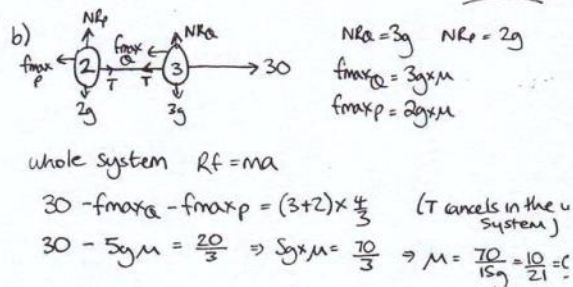 b) NRp NRQ
fmax p 2 fmax Q 3 30
T T
2g 3g
NRQ = 3g NRp = 2g
fmaxQ = 3g×μ
fmaxp = 2g×μ
whole system Rf = ma
30 - fmaxQ - fmaxp = (3+2) × 4/3 (T cancels in the
system)
30 - 5gμ = 20/3 ⇒ 5g×μ = 70/3 ⇒ μ = 70/15g = 10/21 =